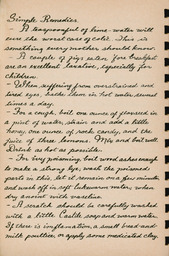 Simple Remedies
A teaspoonful of home-water will
cure the worst case of colic. This is
something every mother should know.
A couple of figs eaten for breakfast
are an excellent laxative, especially for
children.
- When suffering from overstrained and
tired eyes, bathe them in hot water several
times a day.
- For a cough, boil one ounce of flaxseed in
a pint of water, strain and add a little
honey, one ounce of rock candy, and the
juice of three lemons. Mix and boil well.
Drink as hot as possible.
- For ivy poisoning, boil wood ashes enough
to make a strong lye, wash the poisoned
parts in this, let it remain on a few minutes
and wash off in soft lukewarm water, when
dry anoint with vaseline.
- A scratch should be carefully washed
with a little Castile soap and warm water.
If there is inflammation, a small bread-and-
milk poultice, or apply some medicated clay.